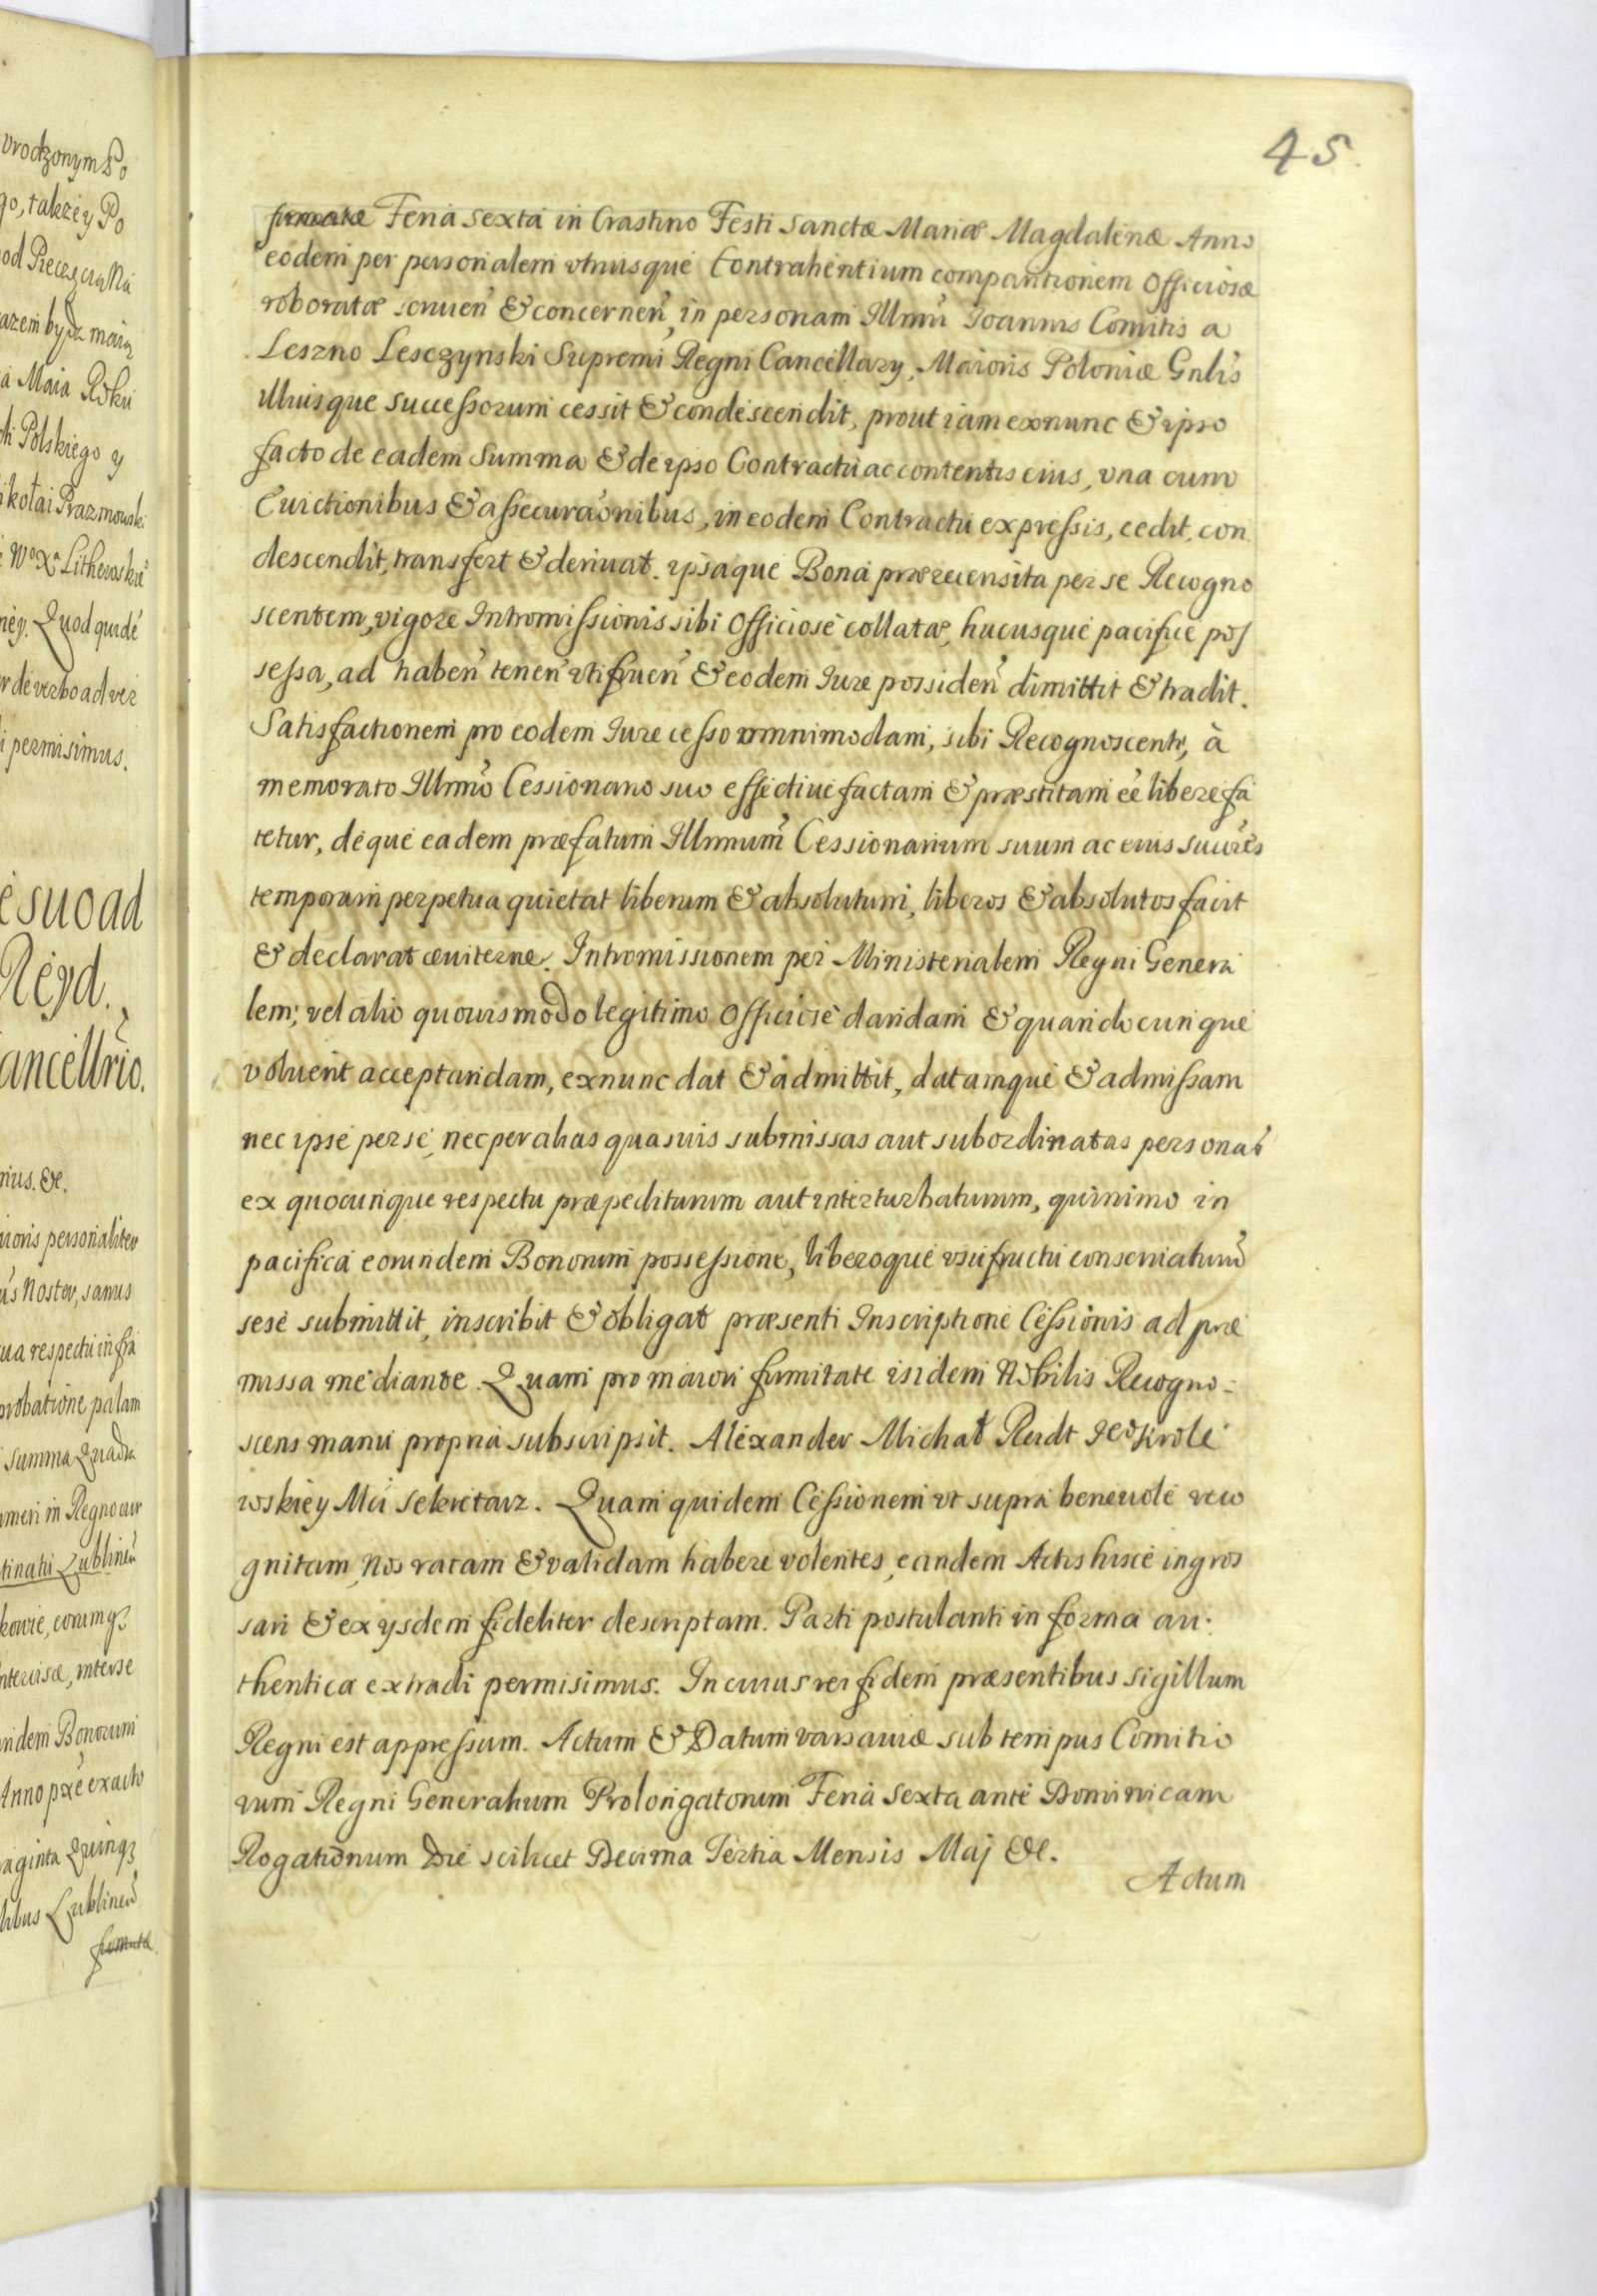 45.
firmatæ Feria sexta in Crastino Festi Sanctæ Mariæ Magdalenæ Anno
eodem per personalem vtriusque Contrahentium comparitionem Officiosæ
roboratæ seruien̄ & concernen̄, in personam Illmū Joannis Comitis a
Leszno Lesczynski Supremi Regni Cancellarÿ, Maioris Poloniæ Gnlis
illiusque Successorum cessit & condescendit, prout iam exnunc & ipso
facto de eadem Summa & de ipso Contractu ac contentis eius, vna cum
Euictionibus & assecuraōnibus, in eodem Contractu expressis, cedit, con
descendit, transfert & deriuat. ipsaque Bona præreciensita per se Recogno
scentem, vigore Intromissionis sibi Officiose collatæ, hucusque pacifice pos
sessa, ad haben̄ tenen̄ vtifruen̄ & eodem Iure possiden̄ dimittit & tradit.
Satisfactionem pro eodem Iure cesso omnimodam, sibi Recognoscenti, à
memorato Illmō Cessionario suo effectiue factam & præstitam eē libere fa
tetur, deque eadem præfatum Illmum Cessionarium suum ac eius Suūres
temporum perpetua quietat liberum & absolutum, liberos & absolutos facit
& declarat æuiterne. Intromissionem per Ministerialem Regni Genera
lem; vel alio quouismodo legitimo Officiose dandam & quandocunque
voluerit acceptandam, exnunc dat & admittit, datamque & admissam
nec ipse per se, nec per alias quasuis submissas aut subordinatas personas
ex quocunque respectu præpediturum aut interturbaturum, quinimo in
pacifica eorundem Bonorum possessione, liberoque vsufructu conseruaturum
sese submittit, inscribit & obligat præsenti Inscriptione Cessionis ad præ
missa mediante. Quam pro maiori firmitate isidem Nobilis Recogno-
scens manu propria subscripsit. Alexander Michał Reidt Jeo Krole
wskiey Mci Sekretarz. Quam quidem Cessionem vt supra beneuole reco
gnitam, Nos ratam & validam habere volentes, eandem Actis hisce ingros
sari & ex ÿsdem fideliter descriptam. Parti postulanti in forma au-
thentica extradi permisimus. In cuius rei fidem præsentibus sigillum
Regni est appressum. Actum & Datum varsauiæ sub tempus Comitio
rum Regni Generalium Prolongatorum Feria Sexta ante Dominicam
Rogationum Die scilicet Decima Tertia Mensis Maj &c.
Actum